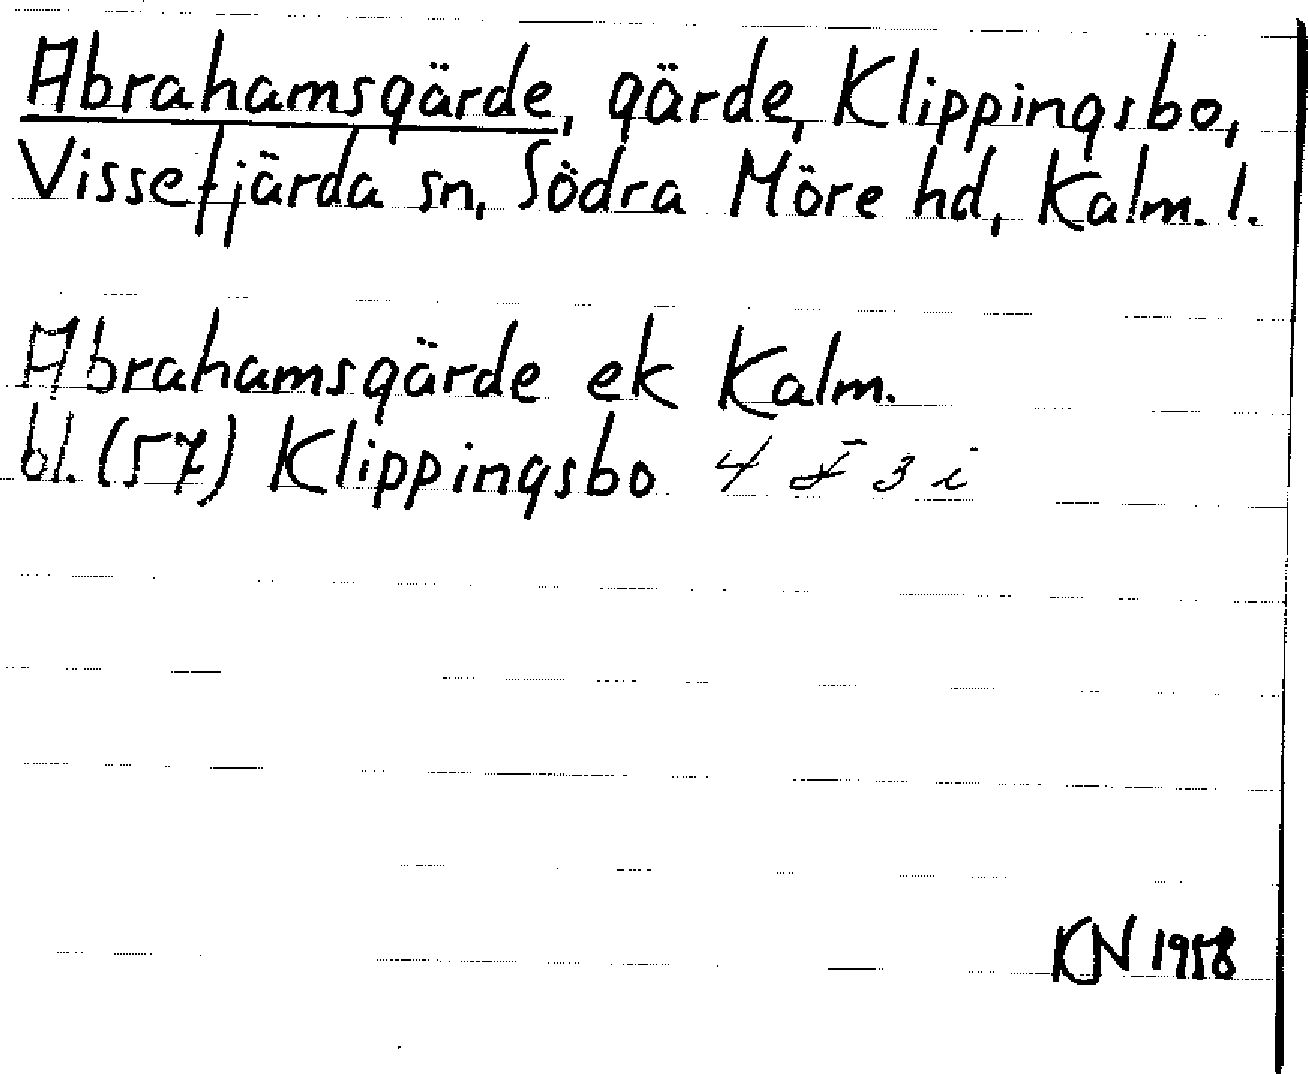 Abrahamsgärde, gärde, Klippingsbo,
Vissefjärda sn, Södra Möre hd, Kalm. l.
Abrahamsgärde ek Kalm.
bl. (57) Klippingsbo 4 F 3 i
KN 1958